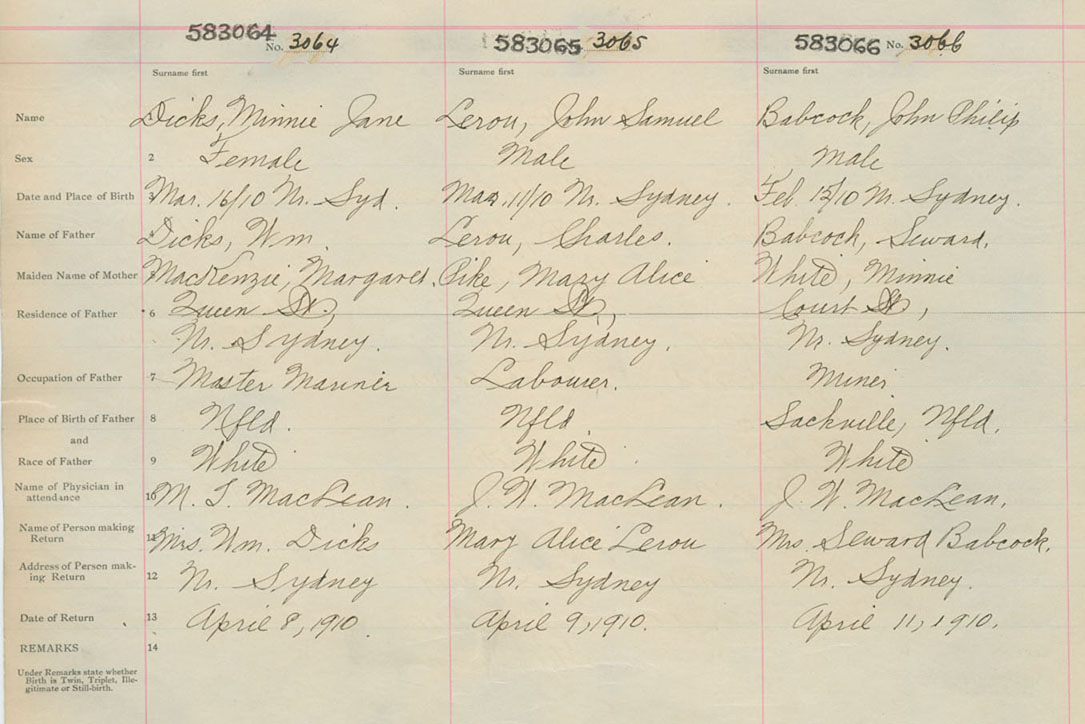 583064 No. 3064 583065 3065 583066 No. 3066
Surname first Surname first Surname first
Name 1 Dicks, Minnie Jane Lerou, John Samuel Babcock, John Philip
Sex 2 Female Male Male
Date and Place of Birth 3 Mar. 16/10 Nr. Syd. Mar. 11/10 Nr. Sydney. Feb. 15/10 Nr. Sydney.
Name of Father 4 Dicks, Wm. Lerou, Charles. Babcock, Seward.
Maiden Name of Mother MacKenzie, Margaret. Pike, Mary Alice White, Minnie
Residence of Father 6 Queen St, Queen St, Court St,
Nr. Sydney. Nr. Sydney. Nr. Sydney.
Occupation of Father 7 Master Mariner Labourer. Miner
Place of Birth of Father 8 Nfld. Nfld. Sackville, Nfld.
and
Race of Father 9 White White White
Name of Physician in
attendance 10 M. T. MacLean. J. W. MacLean. J. W. MacLean.
Name of Person making
Return 11 Mrs. Wm. Dicks Mary Alice Lerou Mrs. Seward Babcock.
Address of Person mak-
ing Return 12 Nr. Sydney Nr. Sydney Nr. Sydney.
Date of Return 13 April 8, 1910. April 9, 1910. April 11, 1910.
REMARKS 14
Under Remarks state whether
Birth is Twin, Triplet, Ille-
gitimate or Still-birth.